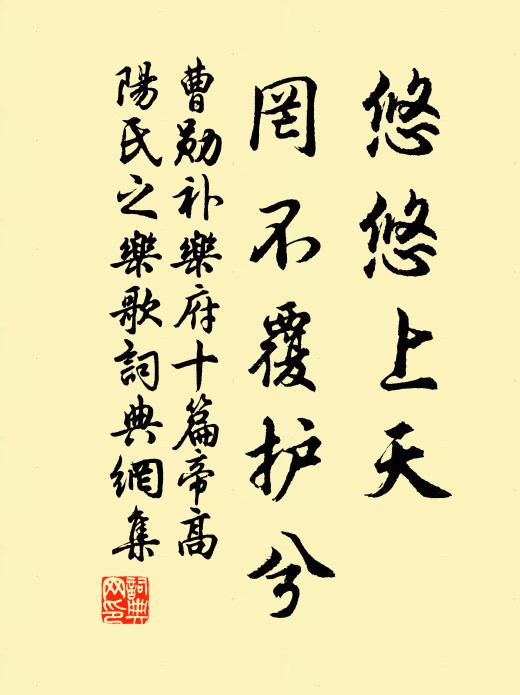 悠悠上天
罔不覆护兮
曹勋补樂府十篇帝高
陽氏之樂歌詞典網集